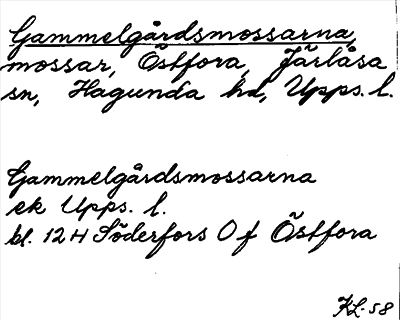 Gammelgårdsmossarna,
mossar, Östfora, Järlåsa
sn, Hagunda hd, Upps. l.
Gammelgårdsmossarna
ek Upps. l.
bl. 12 H Söderfors 0 f Östfora
KL-58